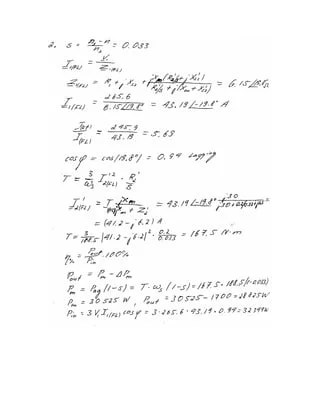 2. s = (n₁ - n)/n₁ = 0.033
I₁(FL) = V₁/Z₁(FL)
Z₁(FL) = R₁ + jX₁s + jXm(R₂'/s + jX₂s')/(R₂'/s + j(Xm + X₂s')) = 6.15∠19.8°
I₁(FL) = 265.6/6.15∠19.8° = 43.19∠-19.8° A
/I₁(FL) = 245.9/43.19 = 5.69
cosφ = cos(19.8°) = 0.94 lagging
T = 3/ωs I₂(FL)'² · R₂'/s
I₂(FL)' = jXm/ + Z₂' = 43.19∠-19.8°
= (41.2 - j6.2) A
T = 3/188.5 |41.2 - j6.2|² · 0.2/0.033 = 167.5 N·m
= Pout/Pin · 100%
Pout = Pm - ΔPm
Pm = Pag(1-s) = T · ωs (1-s) = 167.5 · 188.5(1-0.033)
Pm = 30525 W, Pout = 30525 - 1700 = 28825W
Pin = 3V₁I₁(FL) cosφ = 3 · 265.6 · 43.19 · 0.94 =